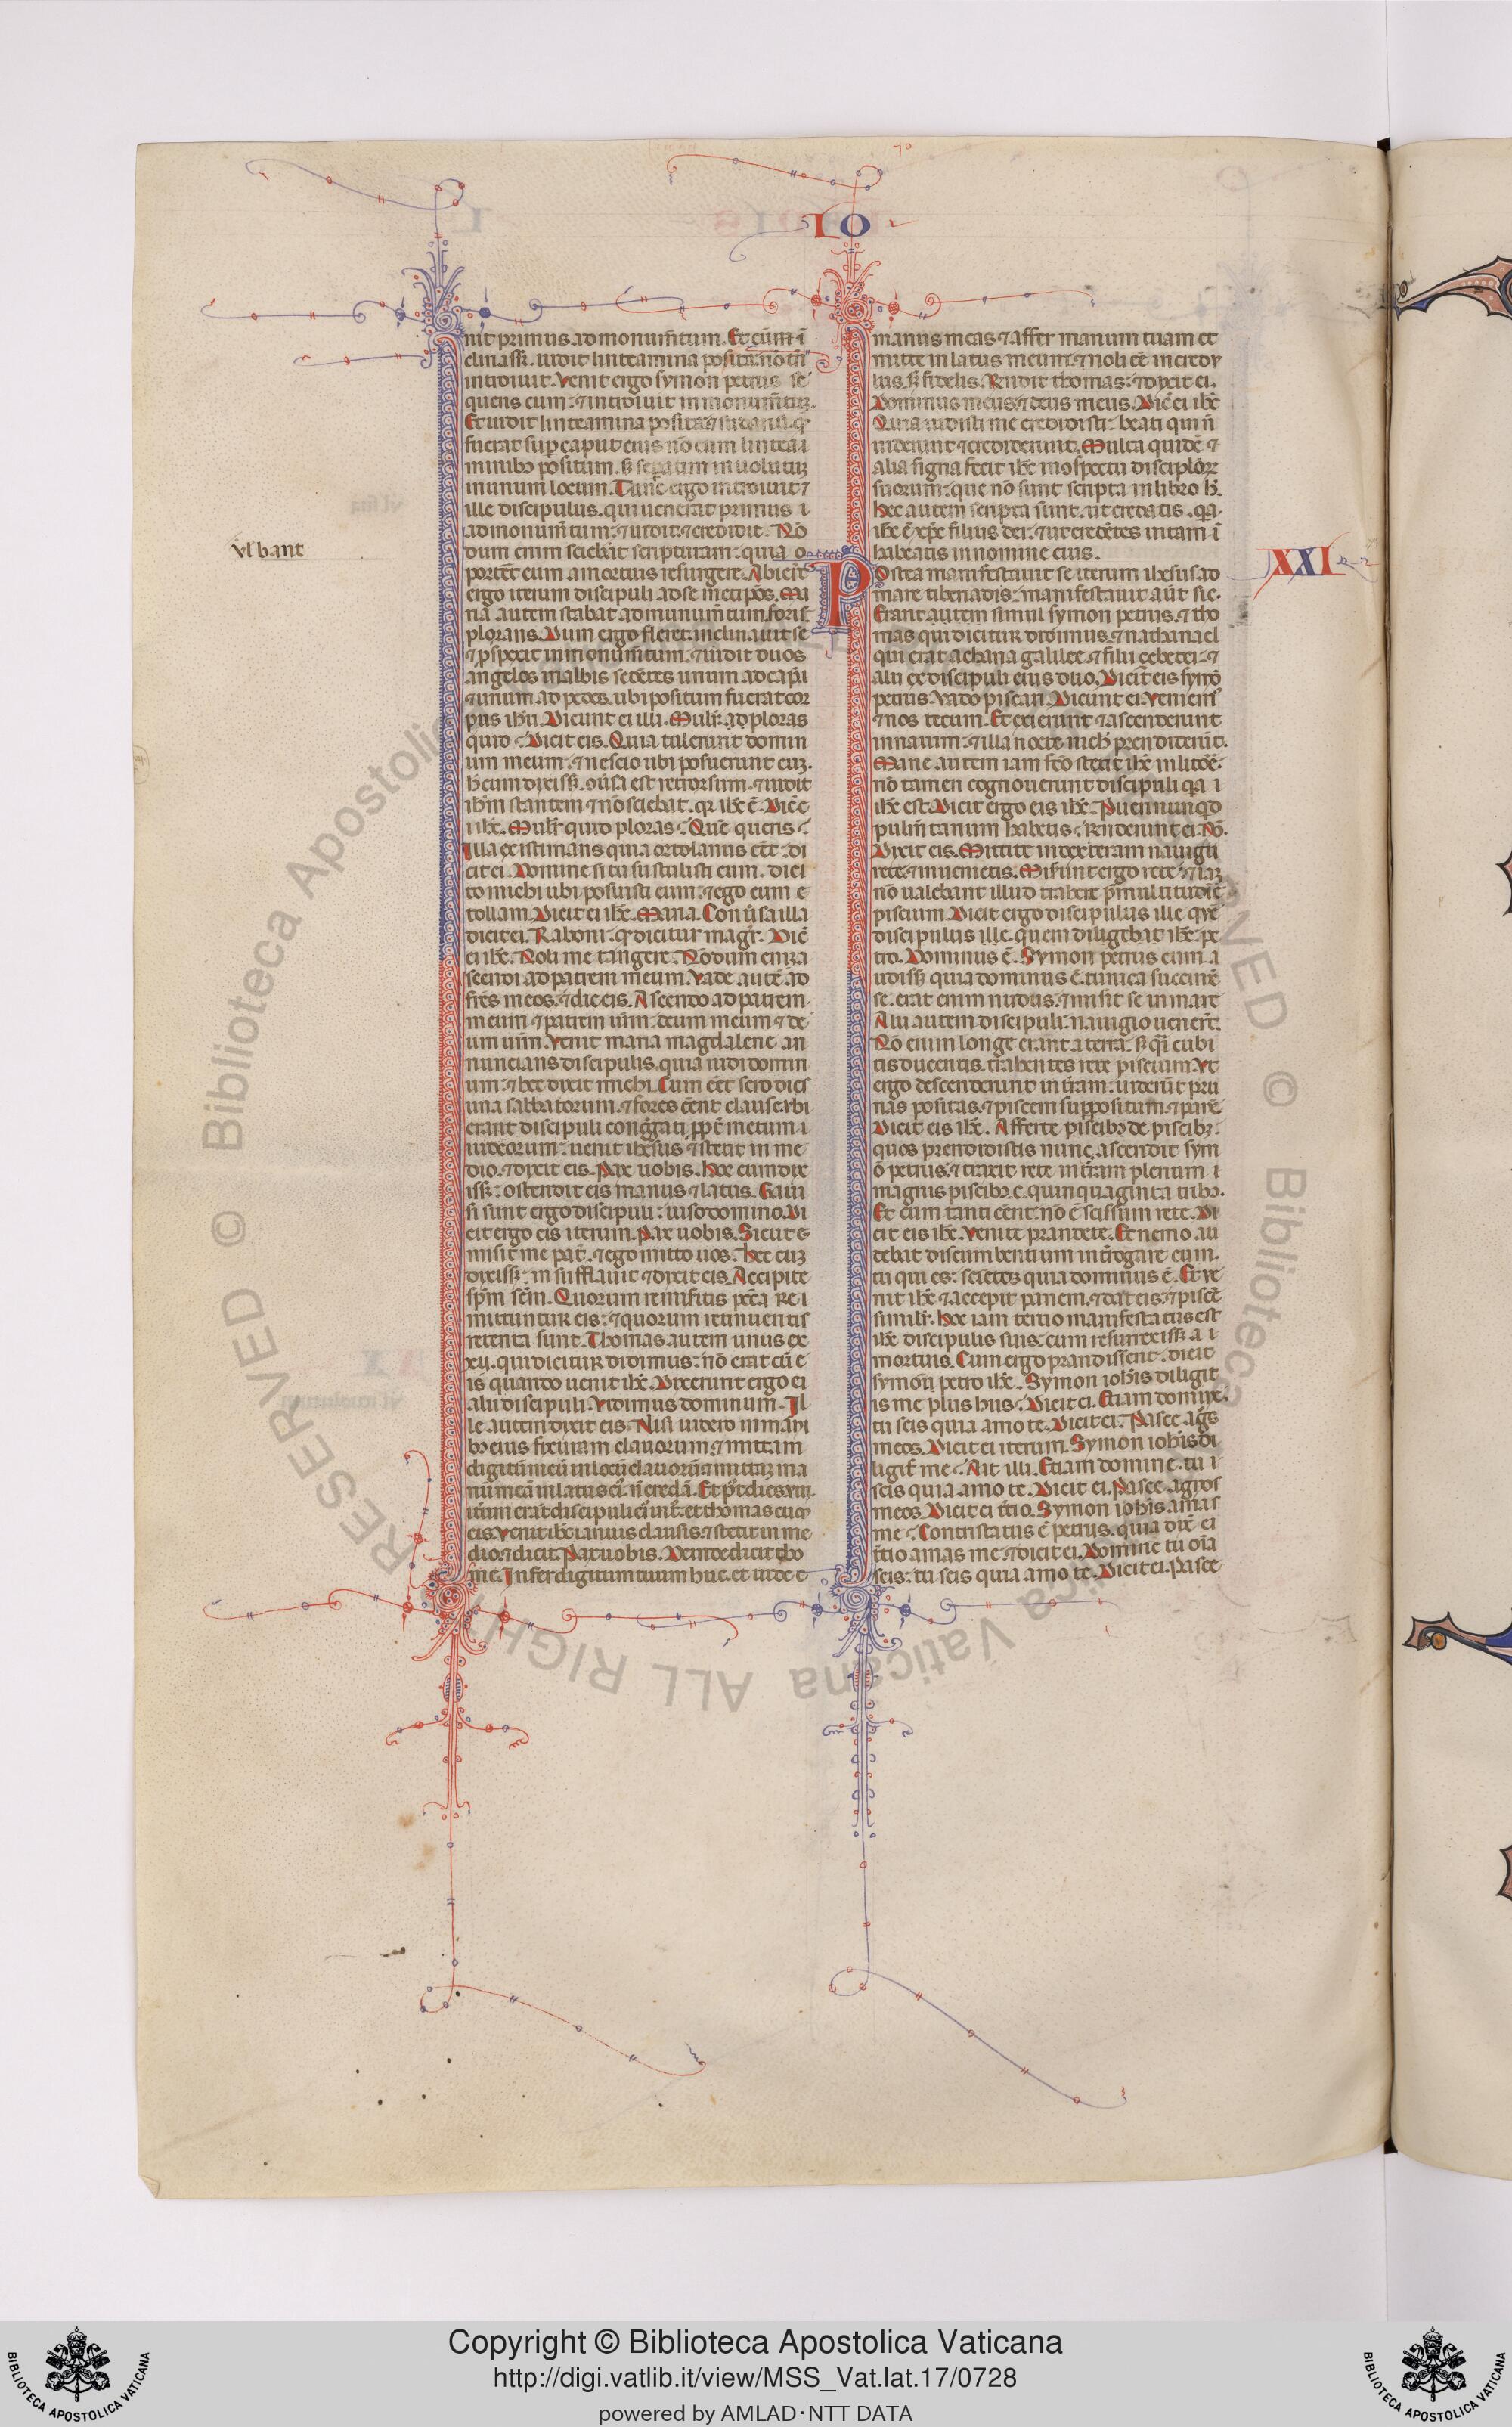 IO
nit primus ad monum̃tum. Et cũm ĩ
clinass̃. uidit linteamina posita. nõ tñ
introiuit. Venit ergo symon petrus se
quens eum: ⁊ introiuit in monum̃tuʒ.
Et uidit linteamina posita ⁊ sudariũ. qđ
fuerat sup̱ caput eius nõ cum lintea i
minibꝫ positum. sꝫ sepatim inuolutuʒ
in unum locum. Tunc ergo introiuit ⁊
ille discipulus. qui uenerat primus i
ad monum̃tum: ⁊ uidit: ⁊ credidit. Nõ
dum enim sciebãt scripturam: quia o
vl bant
portẽt eum a mortuis resurgere. Abierũt
ergo iterum discipuli ad semetip̃os. Ma
ria autem stabat ad munum̃tum foris
plorans. Dum ergo fleret: inclinauit se
⁊ p̱spexit in monum̃tum: ⁊ uidit duos
angelos in albis sedẽtes unum ad capi
⁊ unum ad pedes. ubi positum fuerat cor
pus ihũ. Dicunt ei illi. Mulr̃. ad ploras
quid? Dicit eis. Quia tulerunt domin
um meum: ⁊ nescio ubi posuerunt euʒ.
H̃ cum dixiss̃. ↄũsa est retrorsum. ⁊ uidit
ihm̃ stantem ⁊ nõ sciebat. qꝛ ihc̃ ẽ. Dic̃ e
i ihc̃. Mulr̃ quid ploras? Quẽ queris?
Illa existimans quia ortolanus eẽt: di
cit ei. Domine si tu sustulisti eum. dici
to michi ubi posuisti eum: ⁊ ego eum e
tollam. Dicit ei ihc̃. Maria. Conũsa illa
dicit ei. Raboni. qđ dicitur magr̃. Dic̃
ei ihc̃. Noli me tangere. Nõdum eniʒ a
scendi ad patrem meum. Vade autẽ ad
frẽs meos. ⁊ dic eis. Ascendo ad patrem
meum ⁊ patrem ur̃m. deum meum ⁊ de
um ur̃m. Venit maria magdalene an
nuncians discipulis. quia uidi domin
um: ⁊ hec dixit michi. Cum eẽt sero dies
una sabbatorum. ⁊ fores eẽnt clause. ubi
erant discipuli cong̃gati pp̱t̃ metum i
iudeorum: uenit ihesus ⁊ stetit in me
dio. ⁊ dixit eis. Pax uobis. Hec cum dix
iss̃: ostendit eis manus ⁊ latus. Gaui
si sunt ergo discipuli: uiso domino. Di
cit ergo eis iterum. Pax uobis. Sicut e
misit me pat̃. ⁊ ego mitto uos. Hec cuʒ
dixiss̃: insufflauit ⁊ dixit eis. Accipite
sp̃m sc̃m. Quorum remiseritis pc̃ca re i
mittuntur eis: ⁊ quorum retinueritis
retenta sunt. Thomas autem unus ex
xii. qui dicitur didimus: nõ erat cũ e
is quando uenit ihc̃. Dixerunt ergo ei
alii discipuli. Vidimus dominum. Il
le autem dixit eis. Nisi uidero in mani
bꝫ eius fixuram clauorum: ⁊ mittam
digitũ meũ in locũ clauorũ: ⁊ mittaʒ ma
nũ meã in latus ei᷑: ñ credã. Et p᷑t dies viii.
it̃um erãt discipuli ei᷑ int᷑: et thomas cũ
eis. Venit ihc̃ ianuis clausis. ⁊ stetit in me
dio: ⁊ dicit. Pax uobis. Deinde dicit tho
me. Infer digitum tuum huc. et uide e
manus meas ⁊ affer manum tuam et
mitte in latus meum: ⁊ noli eẽ incredu
lus. sꝫ fidelis. Rñdit thomas: ⁊ dixit ei.
Dominus meus: ⁊ deus meus. Dic̃ ei ihc̃
Quia uidisti me credidisti: beati qui ñ
uiderunt ⁊ crediderunt. Multa quidẽ ⁊
alia signa fecit ihc̃ in ↄspectu disciplorꝝ
suorum: que nõ sunt scripta in libro h̃.
Hec autem scripta sunt. ut credatis. qꝛ
ihc̃ ẽ xp̃c filius dei: ⁊ ut credẽtes uitam ĩ
habeatis in nomine eius.
XXI
Postea manifestauit se iterum ihesus ad
mare tiberiadis: manifestauit aũt sic.
Erant autem simul symon petrus. ⁊ tho
mas qui dicitur didimus. ⁊ nathanael
qui erat a chana galilee. ⁊ filii çebedei: ⁊
alii ex discipuli eius duo. Dicit̃ eis symõ
petrus. Vado piscari. Dicunt ei. Veniem᷒
⁊ nos tecum. Et exierunt ⁊ ascenderunt
in nauim: ⁊ illa nocte nich̃ prendiderũt.
Mane autem iam fc̃o stetit ihc̃ in litoẽ:
nõ tamen cognouerunt discipuli qꝛ i
ihc̃ est. Dicit ergo eis ihc̃. Pueri nunqđ
pulm̃tarium habetis? Rñderunt ei. Nõ.
Dixit eis. Mittite in dexteram nauigii
rete: ⁊ inuenietis. Miserunt ergo rete: ⁊ iaʒ
nõ ualebant illud trahere p̃ multitudĩe
piscium. Dicit ergo discipulus ille q̃ꝫ
discipulus ille. quem diligebat ihc̃: pe
tro. Dominus ẽ. Symon petrus cum a
udiss̃ quia dominus ẽ: tunica succinx̃
se. erat enim nudus. ⁊ misit se in mare
Alii autem discipuli: nauigio uener̃t.
Nõ enim longe erant a terra. sꝫ q̃i cubi
tis ducentis. trahentes rete piscium. Vt
ergo descenderunt in tr̃am: uider̃t pru
nas positas. ⁊ piscem suppositum: ⁊ panẽ.
Dicit eis ihc̃. Afferte piscibꝫ de piscibꝫ:
quos prendidistis nunc. ascendit sym
õ petrus. ⁊ traxit rete in tr̃am plenum i
magnis piscibꝫ. c. quinquaginta tribꝫ.
Et cum tanti eẽnt: nõ ẽ scissum rete. Di
cit eis ihc̃. Venite prandete. Et nemo au
debat discumbentium int̃rogare eum.
tu qui es: scietes quia dominus ẽ. Et ue
nit ihc̃ ⁊ accepit panem. ⁊ dat eis: ⁊ piscẽ
similr̃. Hec iam tertio manifestatus est
ihc̃ discipulis suis: cum resurrexiss̃ a i
mortuis. Cum ergo prandissent: dicit
symoni petro ihc̃. Symon ioh̃is diligit
is me plus hiis? Dicit ei. Etiam domine.
tu scis quia amo te. Dicit ei. Pasce ag̃s
meos. Dicit ei iterum. Symon ioh̃is di
ligit̃ me? Ait illi. Etiam domine. tu i
scis quia amo te. Dicit ei. Pasce agnos
meos. Dicit ei tr̃io. Symon ioh̃is. amas
me? Contristatus ẽ petrus. quia dix̃ ei
tr̃io amas me ⁊ dicit ei. Domine tu oĩa
scis: tu scis quia amo te. Dicit ei. Pasce
Copyright © Biblioteca Apostolica Vaticana
http://digi.vatlib.it/view/MSS_Vat.lat.17/0728
powered by AMLAD·NTT DATA
BIBLIOTECA APOSTOLICA VATICANA
BIBLIOTECA APOSTOLICA VATICANA
© Biblioteca Apostolica Vaticana ALL RIGHTS RESERVED